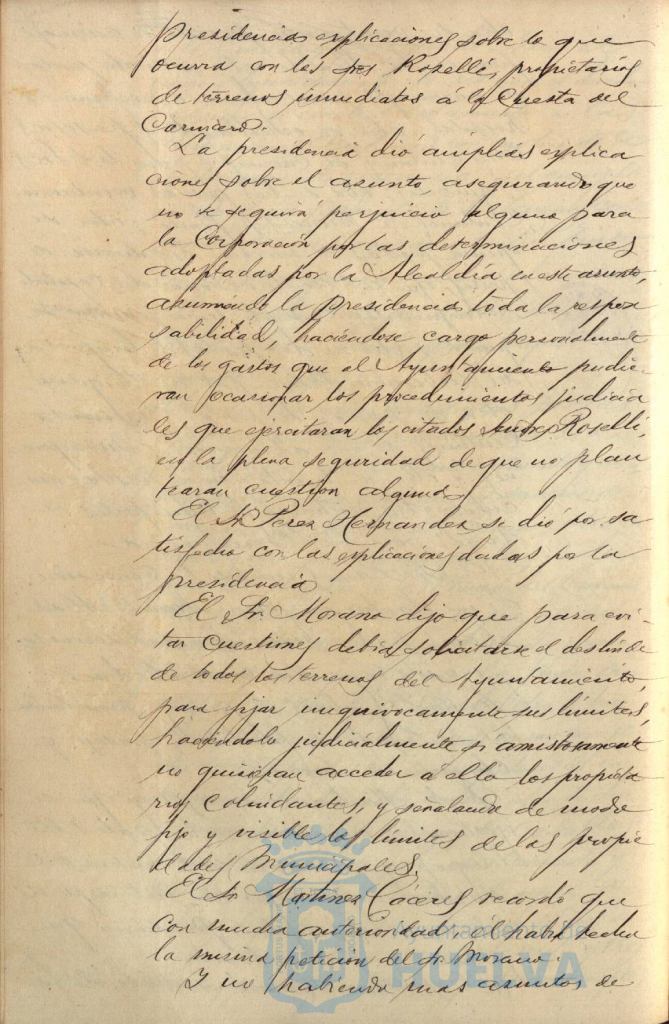 Presidencia explicaciones sobre lo que
ocurra con los Sres Roselló, propietarios
de terrenos inmediatos á la Cuesta del
Carnicero.
La presidencia dió amplias explica
ciones sobre el asunto, asegurando que
no se seguirá perjuicio alguno para
la Corporación por las determinaciones
adoptadas por la Alcaldía en este asunto,
asumiendo la presidencia toda la respon
sabilidad, haciéndose cargo personalmente
de los gastos que al Ayuntamiento pudie-
ran ocasionar los procedimientos judicia
les que ejercitaran los citados Sres Roselló,
en la plena seguridad de que no plan
tearan cuestion alguna.
El Sr. Perez Hernandez se dió por sa
tisfecho con las explicaciones dadas por la
presidencia
El Sr. Morano dijo que para evi-
tar cuestiones debia solicitarse el deslinde
de todos los terrenos del Ayuntamiento,
para fijar inequivocamente sus límites,
haciéndolo judicialmente si amistosamente
no quisieran acceder á ello los propieta
rios colindantes, y señalando de modo
fijo y visible los límites de las propie
dades Municipales.
El Sr. Martinez Cáceres recordó que
con mucha anterioridad, él habia hecho
la misma petición del Sr. Morano.
Y no habiendo mas asuntos de
Ayuntamiento de
HUELVA